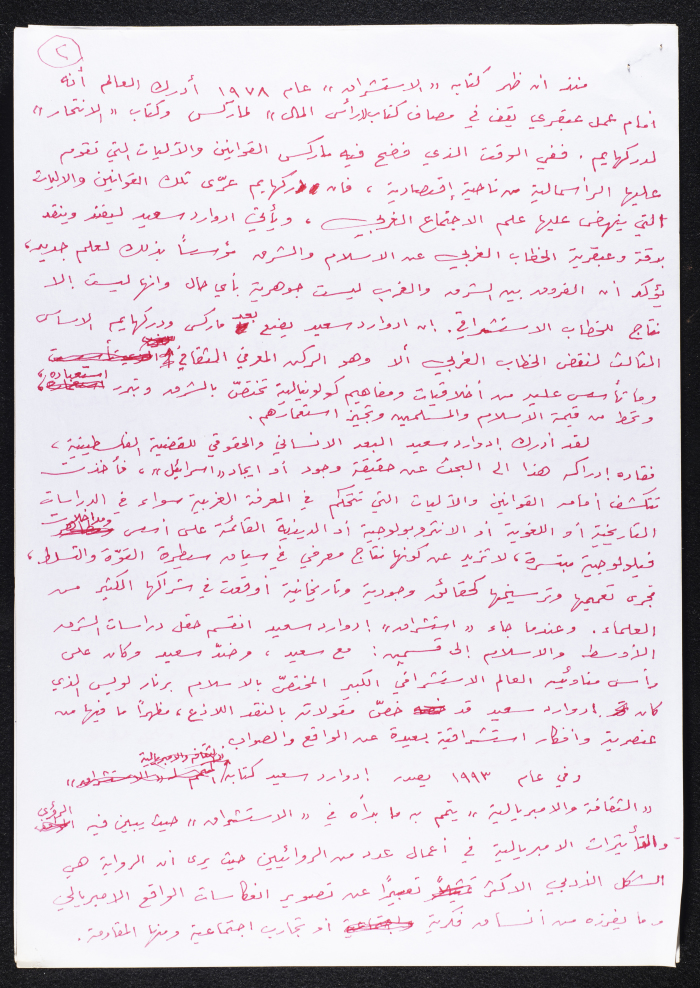 ٢
منذ ان ظهر كتابه «الاستشراق» عام ١٩٧٨ أدرك العالم أنه
امام عمل عبقري يقف في مصاف كتاب «رأس المال» لماركس وكتاب «الانتحار»
لدركهايم. ففي الوقت الذي فضح فيه ماركس القوانين والآليات التي تقوم
عليها الرأسمالية من ناحية إقتصادية، فان دركهايم عرّى تلك القوانين والاليات
التي ينهض عليها علم الاجتماع الغربي، ويأتي ادوارد سعيد ليفند وينقد
بدقة وعبقرية الخطاب الغربي عن الاسلام والشرق مؤسساً بذلك لعلم جديد،
يؤكد أن الفروق بين الشرق والغرب ليست جوهرية بأي حال وانها ليست إلا
نتاج للخطاب الاستشراقي. إن ادوارد سعيد يضع بعد ماركس ودركهايم الاساس
الثالث لنقض الخطاب الغربي ألا وهو الركن المعرفي الثقافي
وما تأسس عليه من أخلاقيات ومفاهيم كولونيالية تختصّ بالشرق وتبرر استعباده،
وتحط من قيمة الاسلام والمسلمين وتجيز استعمارهم.
لقد أدرك إدوارد سعيد البعد الانساني والحقوقي للقضية الفلسطينية،
فقاده إدراكه هذا الى البحث عن حقيقة وجود أو ايجاد «اسرائيل»، فأخذت
تتكشف أمامه القوانين والآليات التي تتحكم في المعرفة الغربية سواء في الدراسات
التاريخية أو اللغوية أو الانثروبولوجية أو الدينية القائمة على أسس ومداخلات
فيلولوجية مبتسرة، لا تزيد عن كونها نتاج معرفي في سياق سيطرة القوّة والتسلط،
فجرى تعميمها وترسيخها كحقائق وجودية وتاريخانية أوقعت في شراكها الكثير من
العلماء. وعندما جاء «استشراق» إدوارد سعيد انقسم حقل دراسات الشرق
الأوسط والاسلام إلى قسمين: مع سعيد، وضدّ سعيد وكان على
رأس مناوئيه العالم الاستشراقي الكبير المختصّ بالاسلام برنار لويس الذي
كان ادوارد سعيد قد خصّ مقولاته بالنقد اللاذع، مظهراً ما فيها من
عنصرية وأفكار استشراقية بعيدة عن الواقع والصواب.
وفي عام ١٩٩٣ يصدر إدوارد سعيد كتابه «الثقافة والامبريالية»
«الثقافة والامبريالية» يتمم به ما بدأه في «الاستشراق» حيث يبين فيه الرؤى
والتأثيرات الامبريالية في أعمال عدد من الروائيين حيث يرى أن الرواية هي
الشكل الأدبي الاكثر تعبيراً عن تصوير انعكاسات الواقع الامبريالي
وما يفرزه من أنساق فكرية أو تجارب اجتماعية ومنها المقاومة.